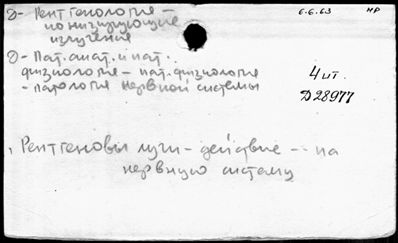 D - Рентгенология -
ионизирующие
излучения
6.6.63 НР
D - Пат. анат. и пат.
физиология - пат. физиология
- патология нервной системы
4 шт.
D 28977
Рентгеновы лучи - действие -- на
нервную систему